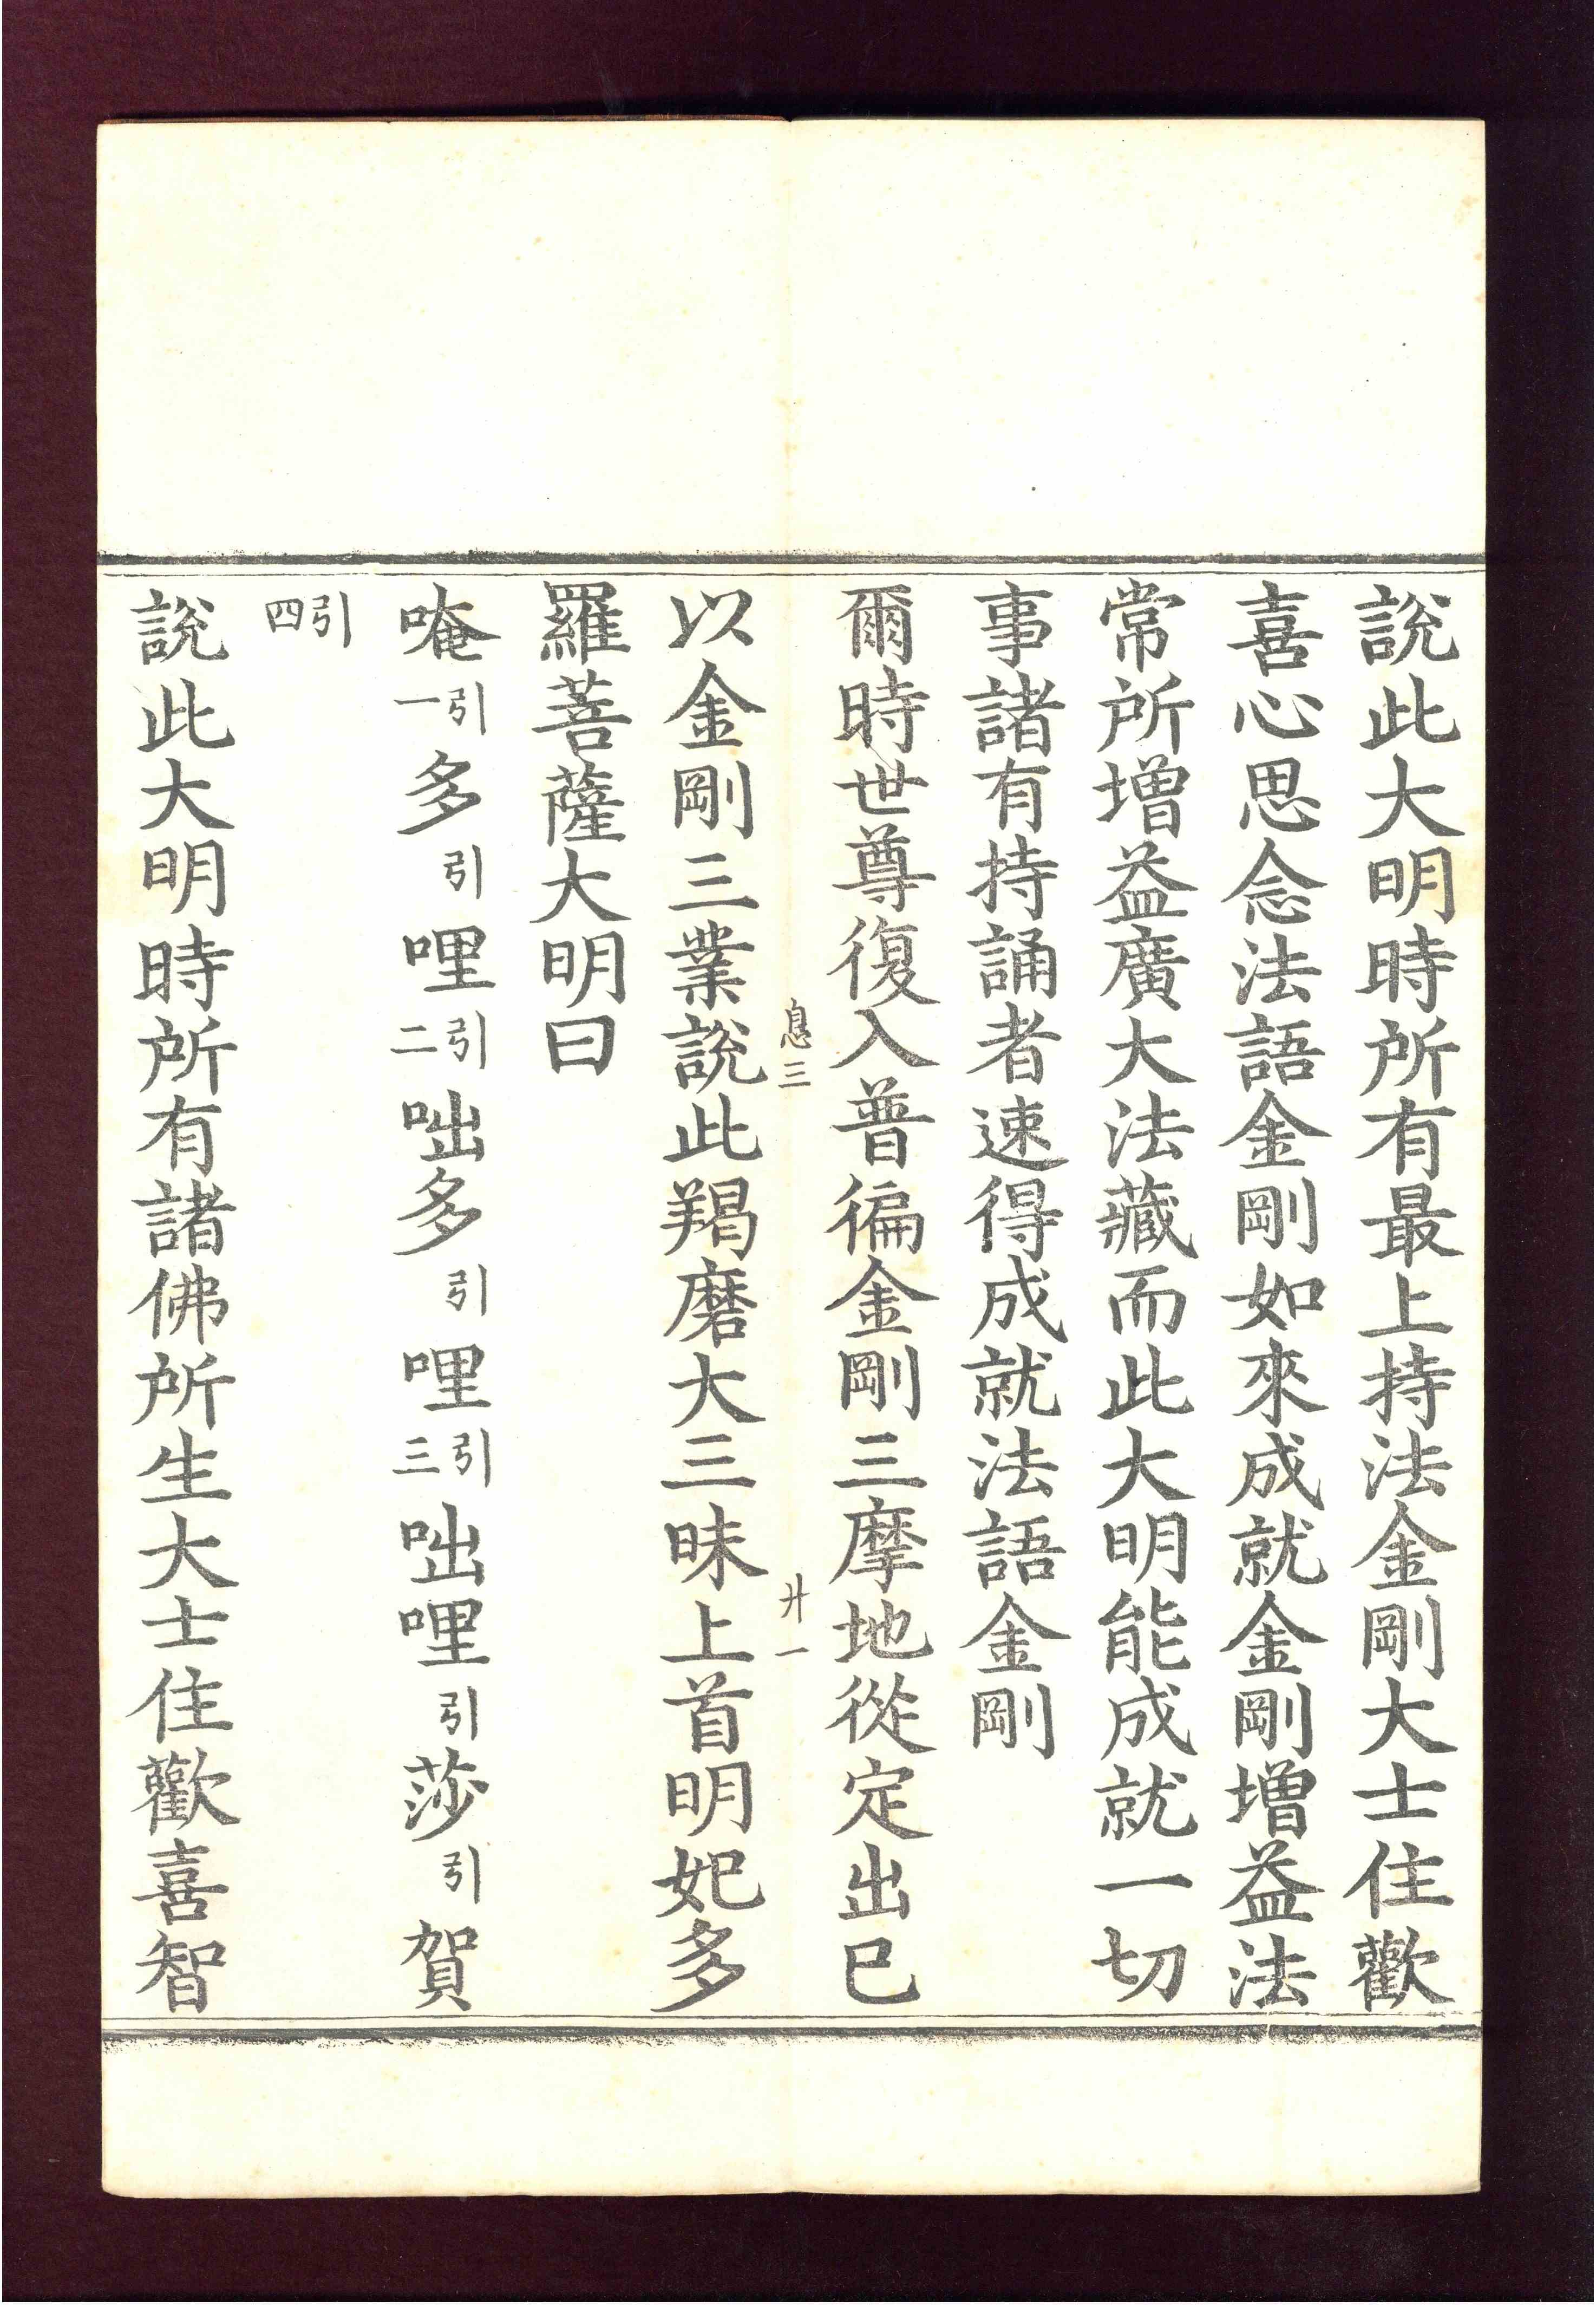 說此大明時所有最上持法金剛大士住歡
喜心思念法語金剛如來成就金剛增益法
常所增益廣大法藏而此大明能成就一切
事諸有持誦者速得成就法語金剛
爾時世尊復入普徧金剛三摩地從定出已
息三 廾一
以金剛三業說此羯磨大三昧上首明妃多
羅菩薩大明曰
唵引一多引哩引二咄多引哩引三咄哩引莎引賀
引四
說此大明時所有諸佛所生大士住歡喜智